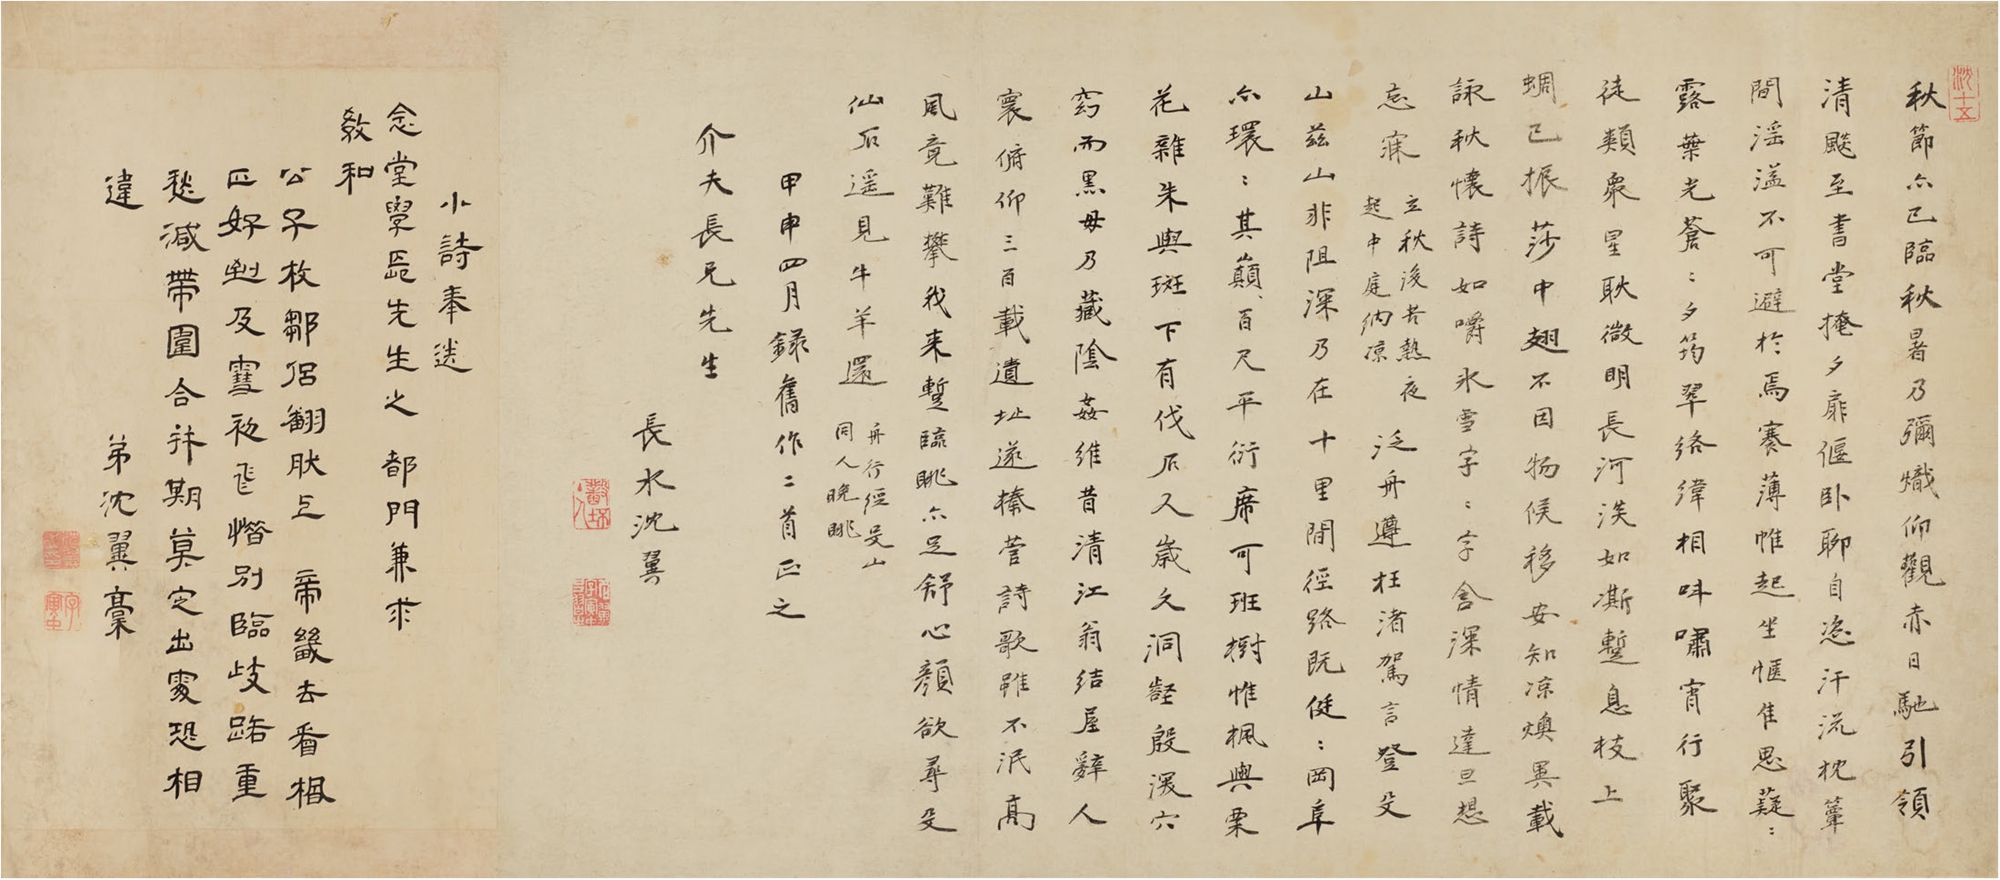 秋節亦已臨秋暑乃彌熾仰觀赤日馳引領
清飈至書堂掩夕扉偃臥聊自恣汗流枕簟
間淫溢不可避於焉褰薄帷起坐愜隹思薿:
露葉光蒼:夕筠翠絡緯相叫嘯宵行聚
徒類衆星耿微明長河淡如澌蹔息枝上
蜩已振莎中翅不因物候移安知凉燠異載
詠秋懷詩如嚼氷雪字:字含深情達旦想
忘寐
立秋後苦熱夜
起中庭納凉
泛舟遵枉渚駕言登殳
山茲山非阻深乃在十里間徑路既侹:岡阜
亦環:其巔百尺平衍席可班樹惟楓與栗
花雜朱與斑下有伐石人歲久洞壑殷深穴
窈而黑毋乃藏陰姦維昔清江翁結屋辭人
寰俯仰三百載遺址遂榛菅詩歌雖不泯高
風竟難攀我来蹔臨眺亦足舒心顏欲尋殳
仙石遥見牛羊還
舟行經殳山
同人晚眺
甲申四月録舊作二首正之
介夫長兄先生
長水沈翼
小詩奉送
念堂學長先生之 都門兼求
教和
公子枚鄒侣翩肰上 帝畿去看楊
正好到及雪初飛惜別臨歧路重
愁減帶圍合并期莫定出處恐相
違
弟沈翼稾